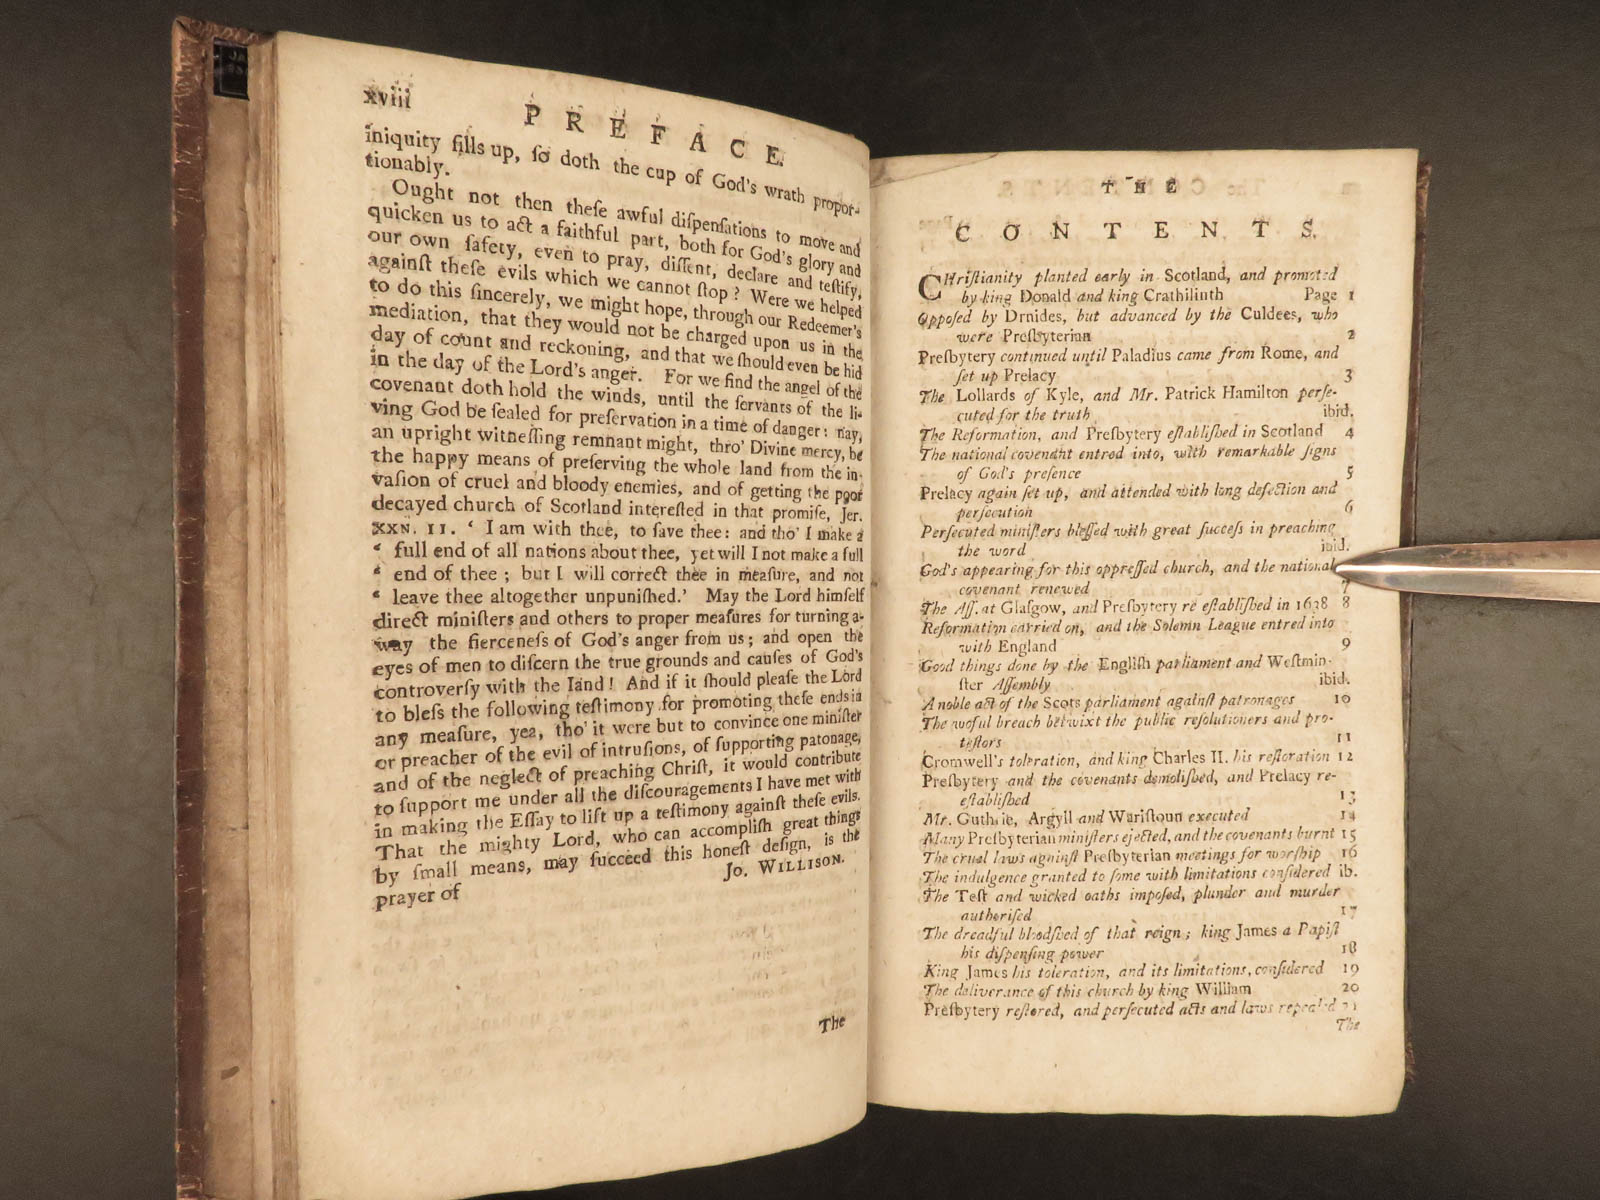 xviii
PREFACE.
iniquity fills up, ſo doth the cup of God's wrath propor-
tionably.
Ought not then theſe awful diſpenſations to move and
quicken us to act a faithful part, both for God's glory and
our own ſafety, even to pray, diſſent, declare and teſtify,
againſt theſe evils which we cannot ſtop? Were we helped
to do this ſincerely, we might hope, through our Redeemer's
mediation, that they would not be charged upon us in the
day of count and reckoning, and that we ſhould even be hid
in the day of the Lord's anger. For we find the angel of the
covenant doth hold the winds, until the ſervants of the li-
ving God be ſealed for preſervation in a time of danger: nay,
an upright witneſſing remnant might, thro' Divine mercy, be
the happy means of preſerving the whole land from the in-
vaſion of cruel and bloody enemies, and of getting the poor
decayed church of Scotland intereſted in that promiſe, Jer.
XXN. II. ‘ I am with thee, to ſave thee: and tho' I make a
‘ full end of all nations about thee, yet will I not make a full
‘ end of thee; but I will correct thee in meaſure, and not
‘ leave thee altogether unpuniſhed.’ May the Lord himſelf
direct miniſters and others to proper meaſures for turning a-
way the fierceneſs of God's anger from us; and open the
eyes of men to diſcern the true grounds and cauſes of God's
controverſy with the land! And if it ſhould pleaſe the Lord
to bleſs the following teſtimony for promoting theſe ends in
any meaſure, yea, tho' it were but to convince one miniſter
or preacher of the evil of intruſions, of ſupporting patonage,
and of the neglect of preaching Chriſt, it would contribute
to ſupport me under all the diſcouragements I have met with
in making the Eſſay to lift up a teſtimony againſt theſe evils.
That the mighty Lord, who can accompliſh great things
by ſmall means, may ſucceed this honeſt deſign, is the
prayer of
Jo. WILLISON.
The
THE
CONTENTS.
CHriſtianity planted early in Scotland, and promoted
by king Donald and king Crathilinth Page 1
Oppoſed by Druides, but advanced by the Culdees, who
were Preſbyterian 2
Preſbytery continued until Paladius came from Rome, and
ſet up Prelacy 3
The Lollards of Kyle, and Mr. Patrick Hamilton perſe-
cuted for the truth ibid.
The Reformation, and Preſbytery eſtabliſhed in Scotland 4
The national covenant entred into, with remarkable ſigns
of God's preſence 5
Prelacy again ſet up, and attended with long defection and
perſecution 6
Perſecuted miniſters bleſſed with great ſucceſs in preaching
the word ibid.
God's appearing for this oppreſſed church, and the national
covenant renewed 7
The Aſſ. at Glaſgow, and Preſbytery re eſtabliſhed in 1638 8
Reformation carried on, and the Solemn League entred into
with England 9
Good things done by the Engliſh parliament and Weſtmin-
ſter Aſſembly ibid.
A noble act of the Scots parliament againſt patronages 10
The woful breach betwixt the public reſolutioners and pro-
teſtors 11
Cromwell's toleration, and king Charles II. his reſtoration 12
Preſbytery and the covenants demoliſhed, and Prelacy re-
eſtabliſhed 13
Mr. Guthrie, Argyll and Wariſtoun executed 14
Many Preſbyterian miniſters ejected, and the covenants burnt 15
The cruel laws againſt Preſbyterian meetings for worſhip 16
The indulgence granted to ſome with limitations conſidered ib.
The Teſt and wicked oaths impoſed, plunder and murder
authoriſed 17
The dreadful bloodſhed of that reign; king James a Papiſt
his diſpenſing power 18
King James his toleration, and its limitations, conſidered 19
The deliverance of this church by king William 20
Preſbytery reſtored, and perſecuted acts and laws repealed 21
The